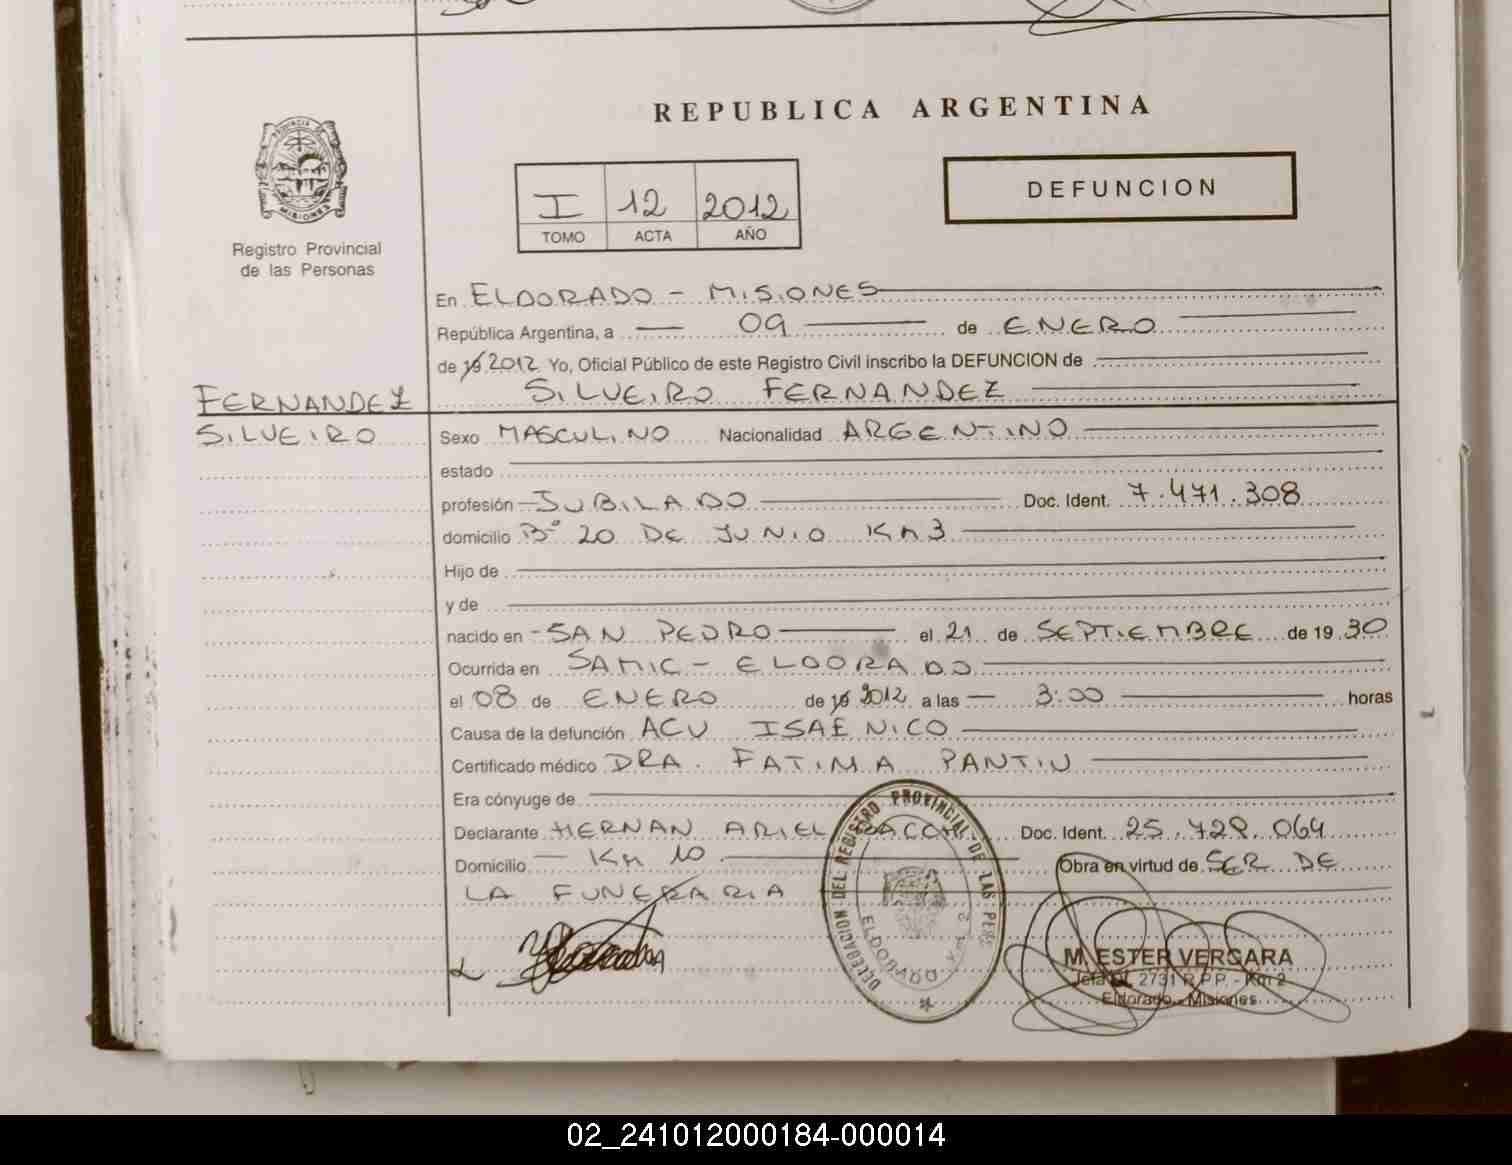 REPUBLICA ARGENTINA
PROVINCIA DE
MISIONES
Registro Provincial
de las Personas
I 12 2012
TOMO ACTA AÑO
DEFUNCION
En ELDORADO - MISIONES
República Argentina, a 09 de ENERO
de 19 2012 Yo, Oficial Público de este Registro Civil inscribo la DEFUNCION de
SILVEIRO FERNANDEZ
FERNANDEZ
SILVEIRO
Sexo MASCULINO Nacionalidad ARGENTINO
estado
profesión JUBILADO Doc. Ident. 7.471.308
domicilio Bº 20 DE JUNIO KM 3
Hijo de
y de
nacido en SAN PEDRO el 21 de SEPTIEMBRE de 19 30
Ocurrida en SAMIC - ELDORADO
el 08 de ENERO de 19 2012 a las 3:00 horas
Causa de la defunción ACV ISAENICO
Certificado médico DRA. FATIMA PANTIN
Era cónyuge de
Declarante HERNAN ARIEL Doc. Ident. 25.728.064
Domicilio KM 10 Obra en virtud de SER DE
LA FUNERARIA
DELEGACION DEL REGISTRO PROVINCIAL DE LAS PERS
ELDORADO Km 2
M. ESTER VERGARA
Jefa 2731 R.P.P. - Km 2
Eldorado - Misiones
02_241012000184-000014